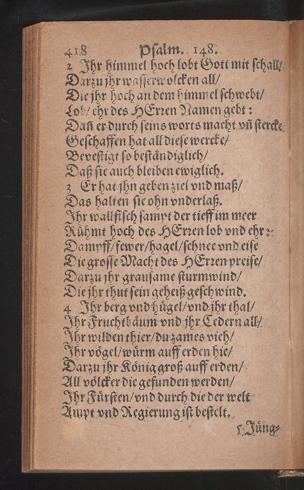 418 Psalm. 148.
2 Ihr himmel hoch lobt Gott mit schall/
Darzu jhr wasserwolcken all/
Die jhr hoch an dem himmel schwebt/
Lob/ ehr des HErren Namen gebt:
Dañ er durch seins worts macht vñ stercke/
Geschaffen hat all diese wercke/
Bevestigt so beständiglich/
Daß sie auch bleiben ewiglich.
3 Er hat jhn geben ziel vnd maß/
Das halten sie ohn vnderlaß.
Ihr wallfisch sampt der tieff im meer
Rühmt hoch des HErren lob vnd ehr:
Dampff/ fewer/ hagel/ schnee vnd eise
Die grosse Macht des HErren preise/
Darzu jhr grausame sturmwind/
Die jhr thut sein geheiß geschwind.
4 Ihr berg vnd hügel/ vnd jhr thal/
Ihr Fruchtbäum vnd jhr Cedern all/
Ihr wilden thier/ du zames vieh/
Ihr vögel/ würm auff erden hie/
Darzu jhr König groß auff erden/
All völcker die gefunden werden/
Ihr Fürsten/ vnd durch die der welt
Ampt vnd Regierung ist bestelt.
5. Jüng-